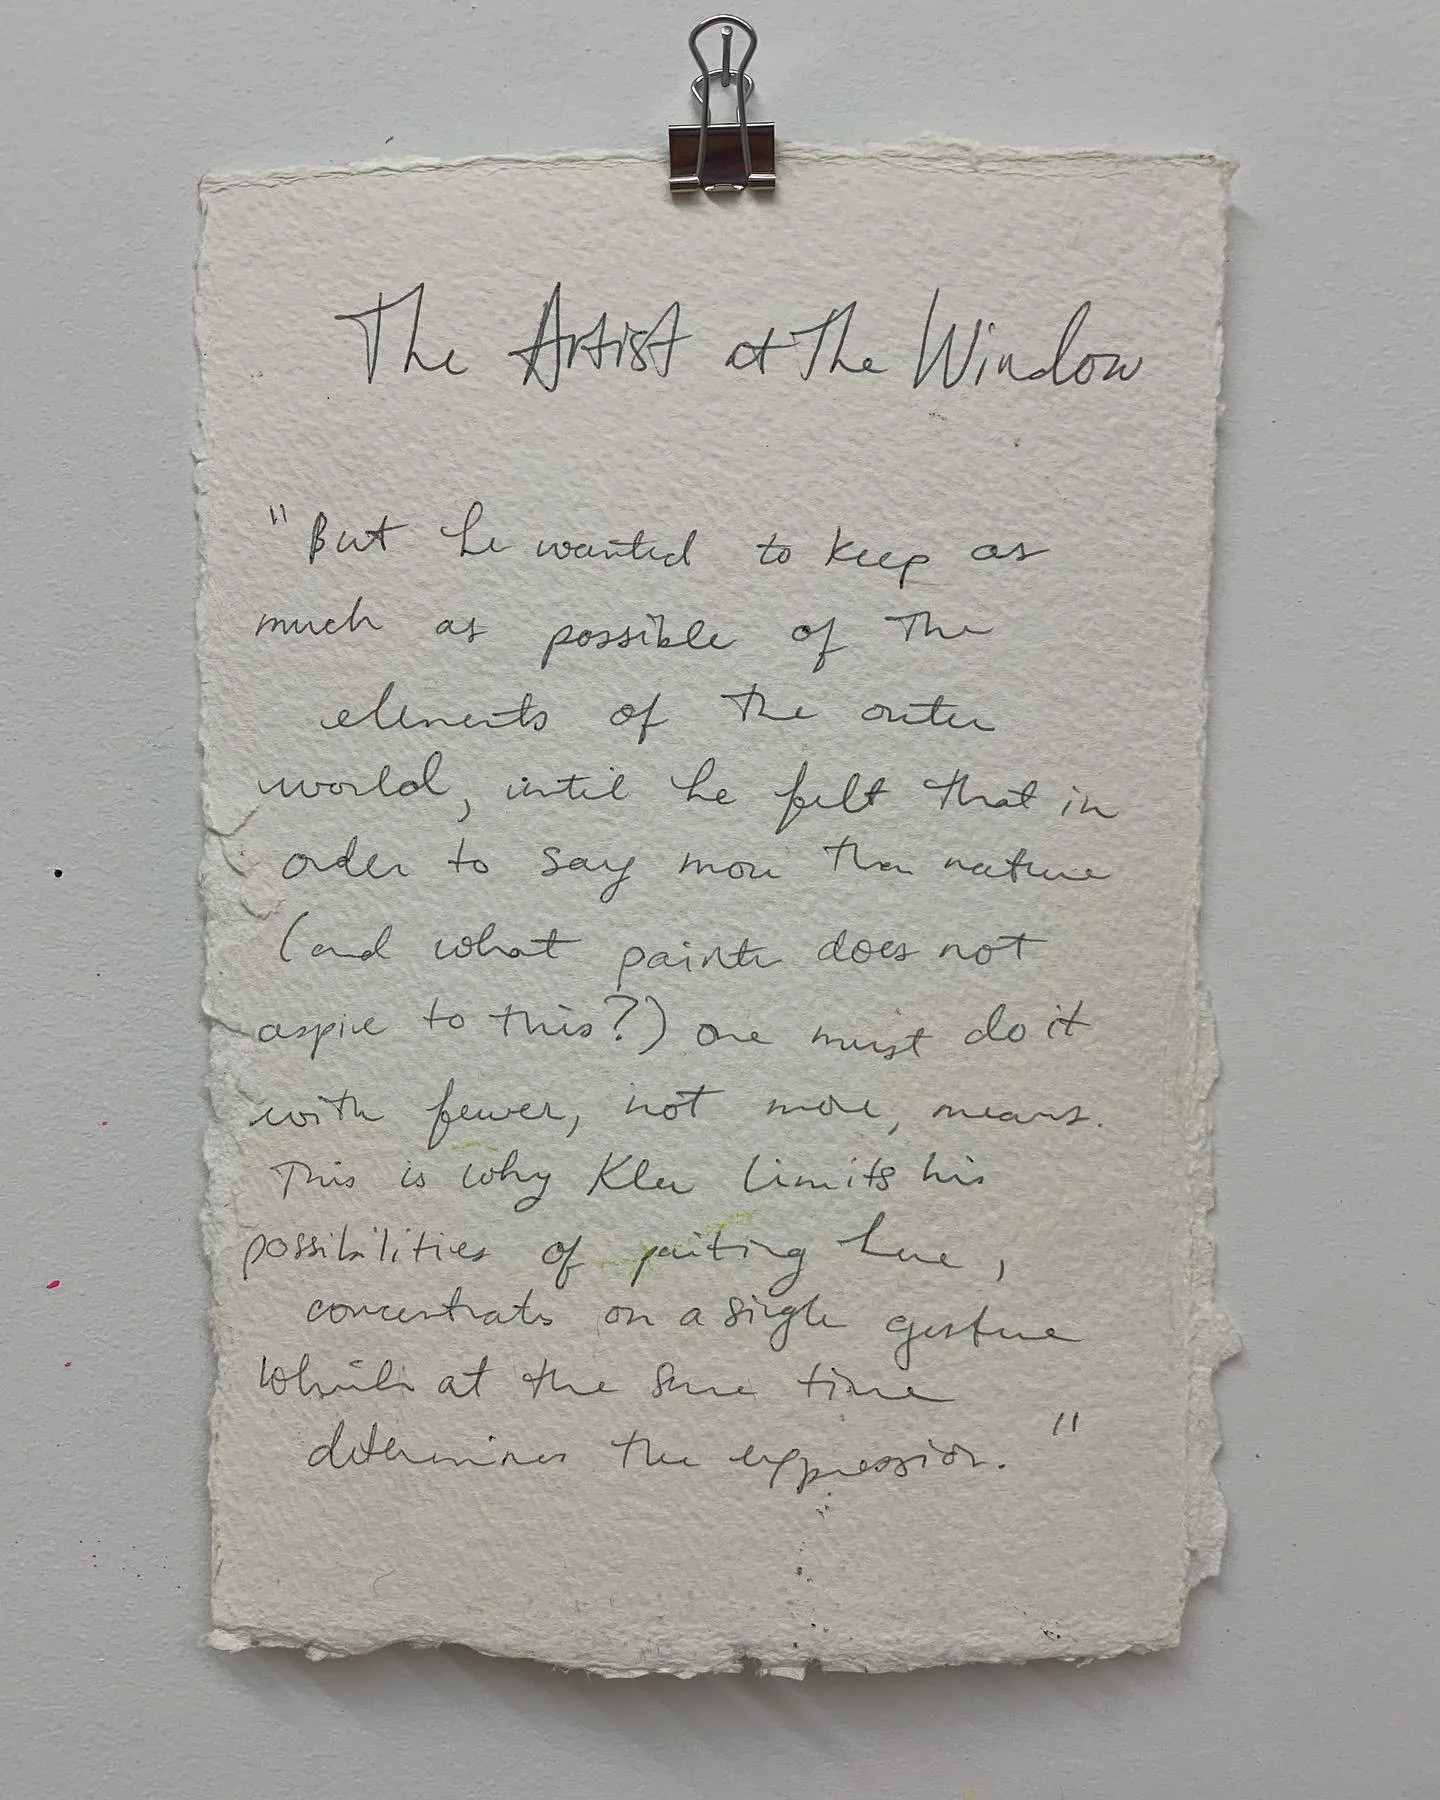 The Artist at The Window
"But he wanted to keep as
much as possible of The
elements of the outer
world, until he felt that in
order to say more than nature
(and what painter does not
aspire to this?) one must do it
with fewer, not more, means.
This is why Klee limits his
possibilities of painting here,
concentrates on a single gesture
which at the same time
determines the expression."